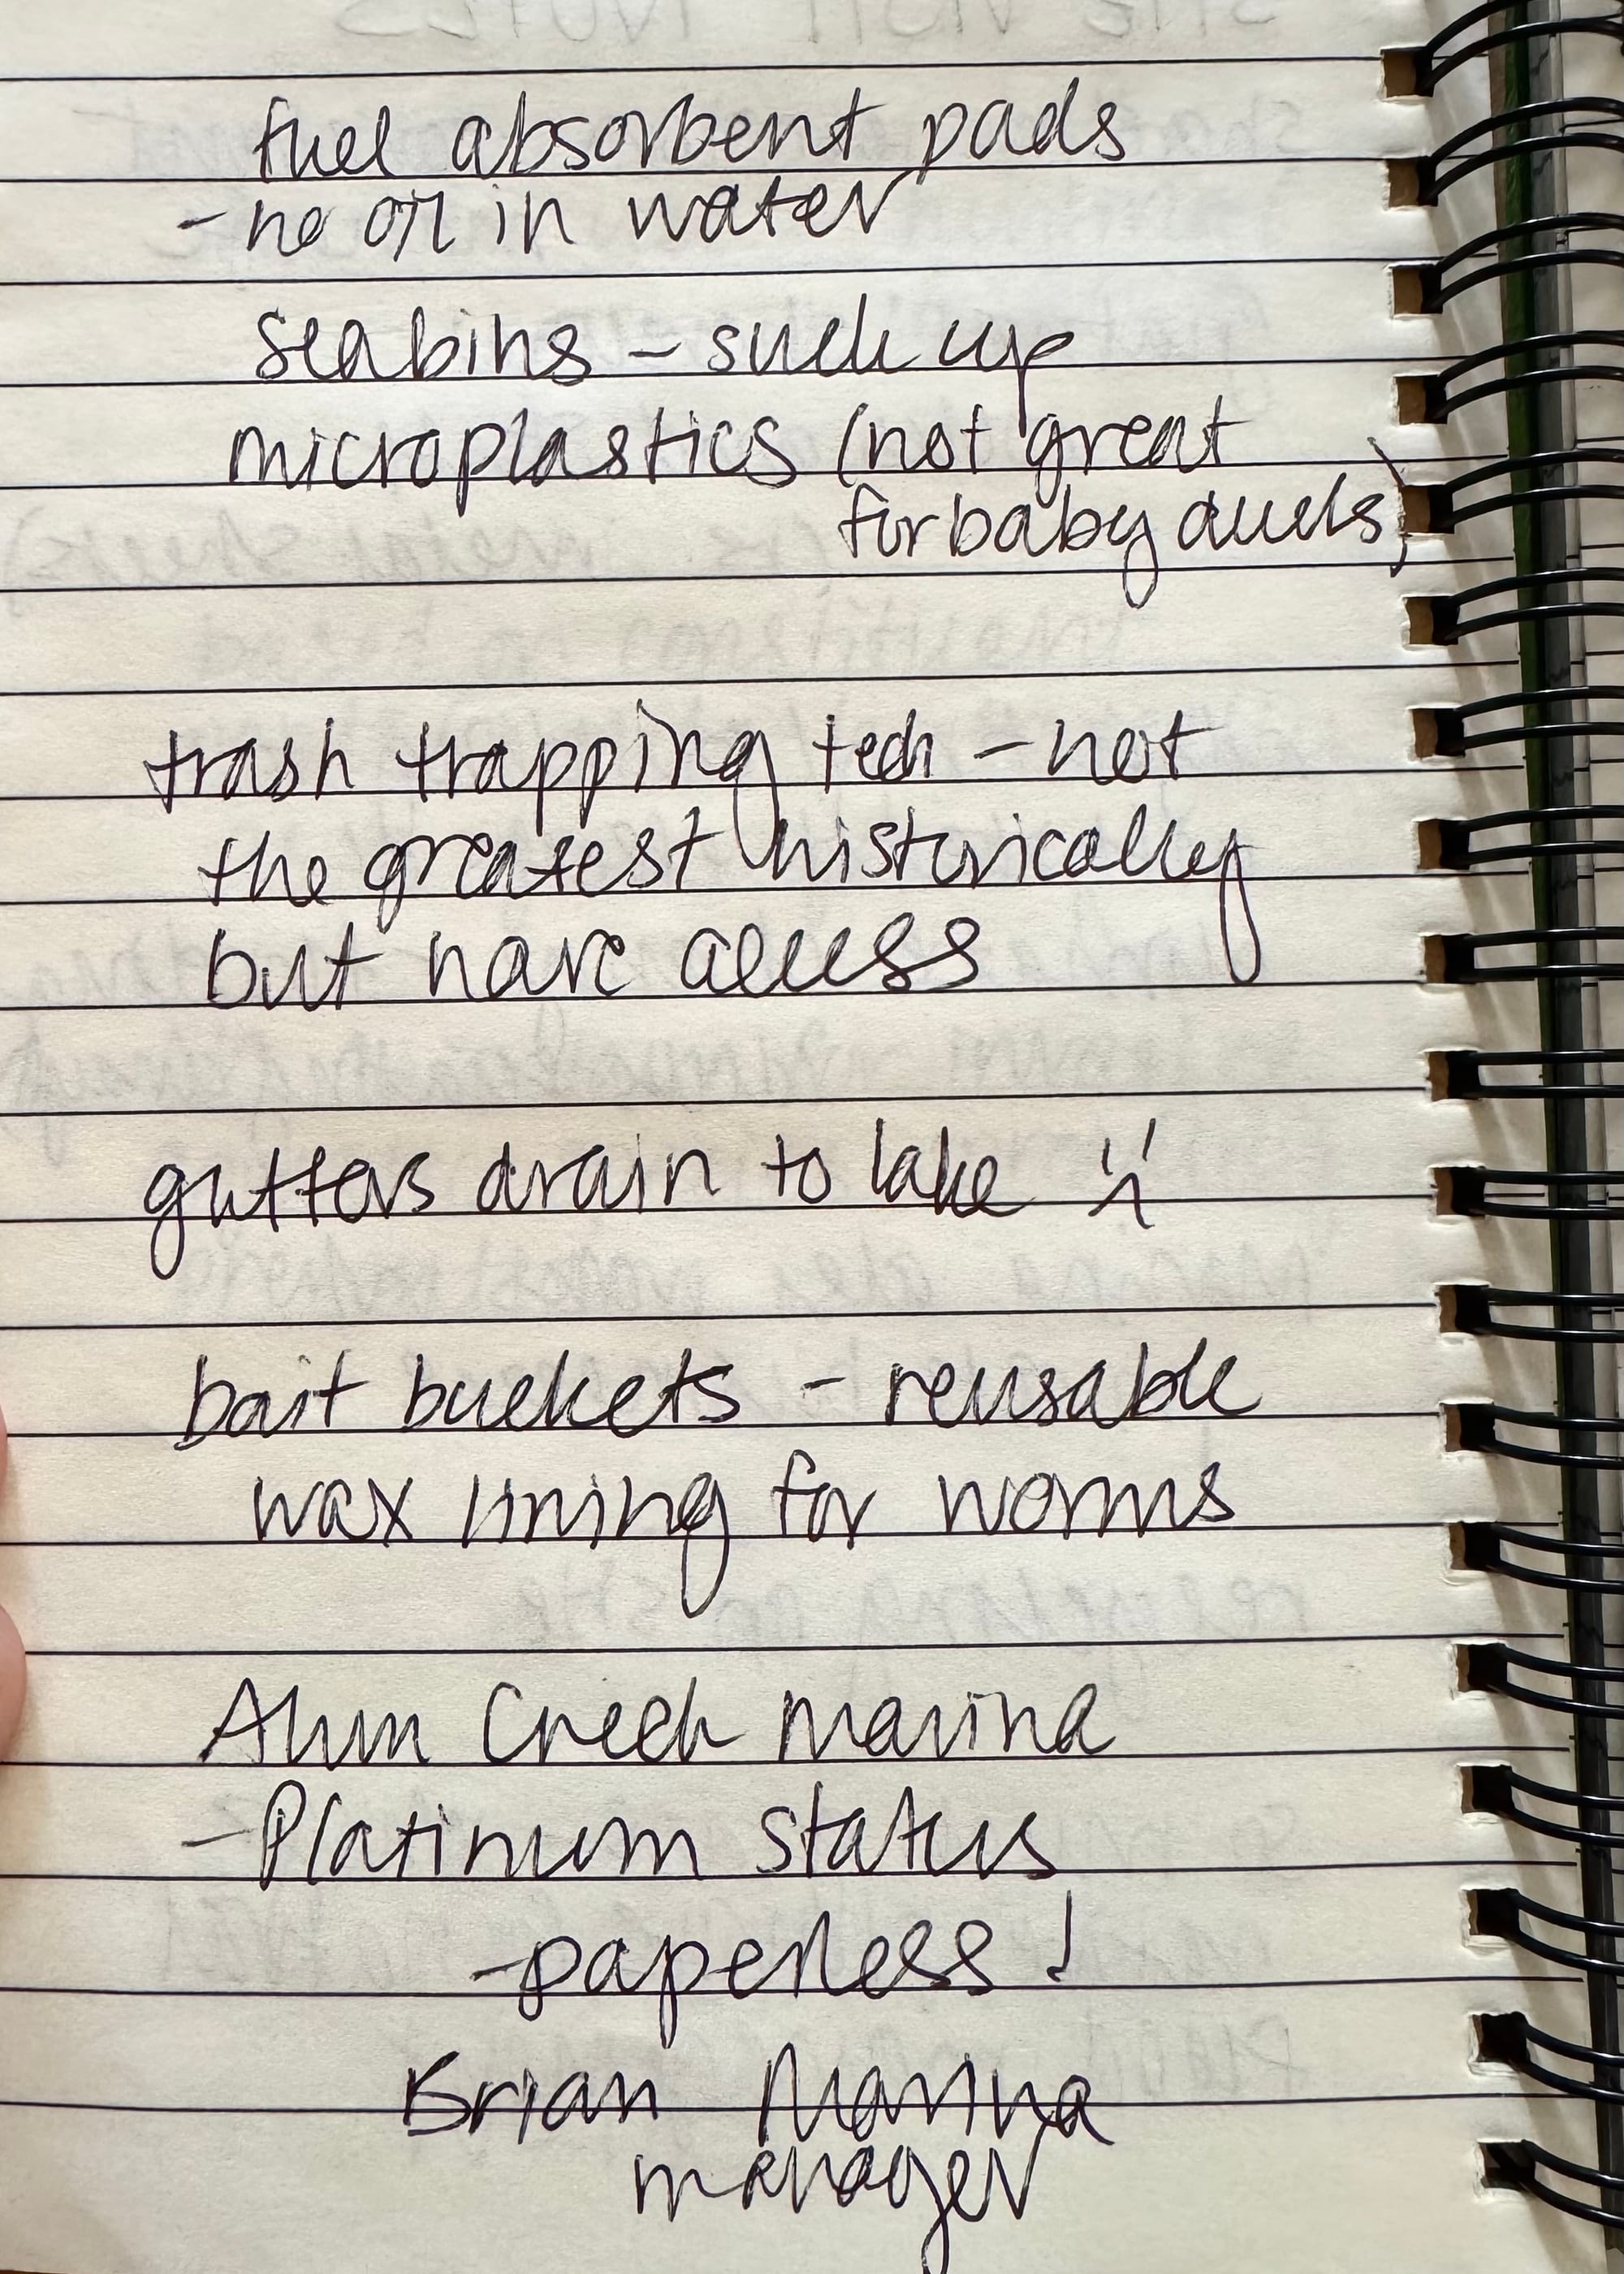 fuel absorbent pads
- no oil in water
seabins - suck up
microplastics (not great
for baby ducks)
trash trapping tech - not
the greatest historically
but have access
gutters drain to lake :(
bait buckets - reusable
wax lining for worms
Alum Creek Marina
- Platinum status
- paperless!
Brian Marina
manager